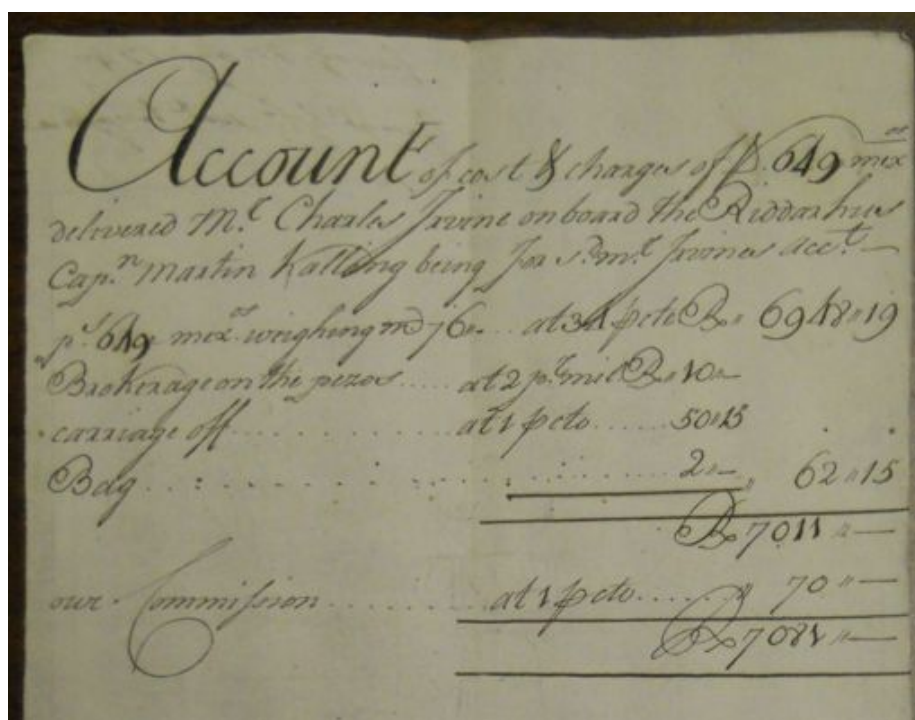 Account of cost & charges of P. 649 mex os
delivered Mr. Charles Irvine on board the Riddarhus
Capn. Martin Kalling being for sd. mr. Irvines acct. —
ps. 649 mexos weighing md 76 „ at 34 p cto Rs „ 6948 „ 19
Brokerage on the pezos .... at 2 pr. mil Rs „ 10 „ —
carriage off ........ at 1 p cto ..... 50 „ 15
Bag ........ 2 „ — „ 62 „ 15
Rs 7011 „ —
our Commission ........ at 1 p cto ..... „ 70 „ —
Rs 7081 „ —